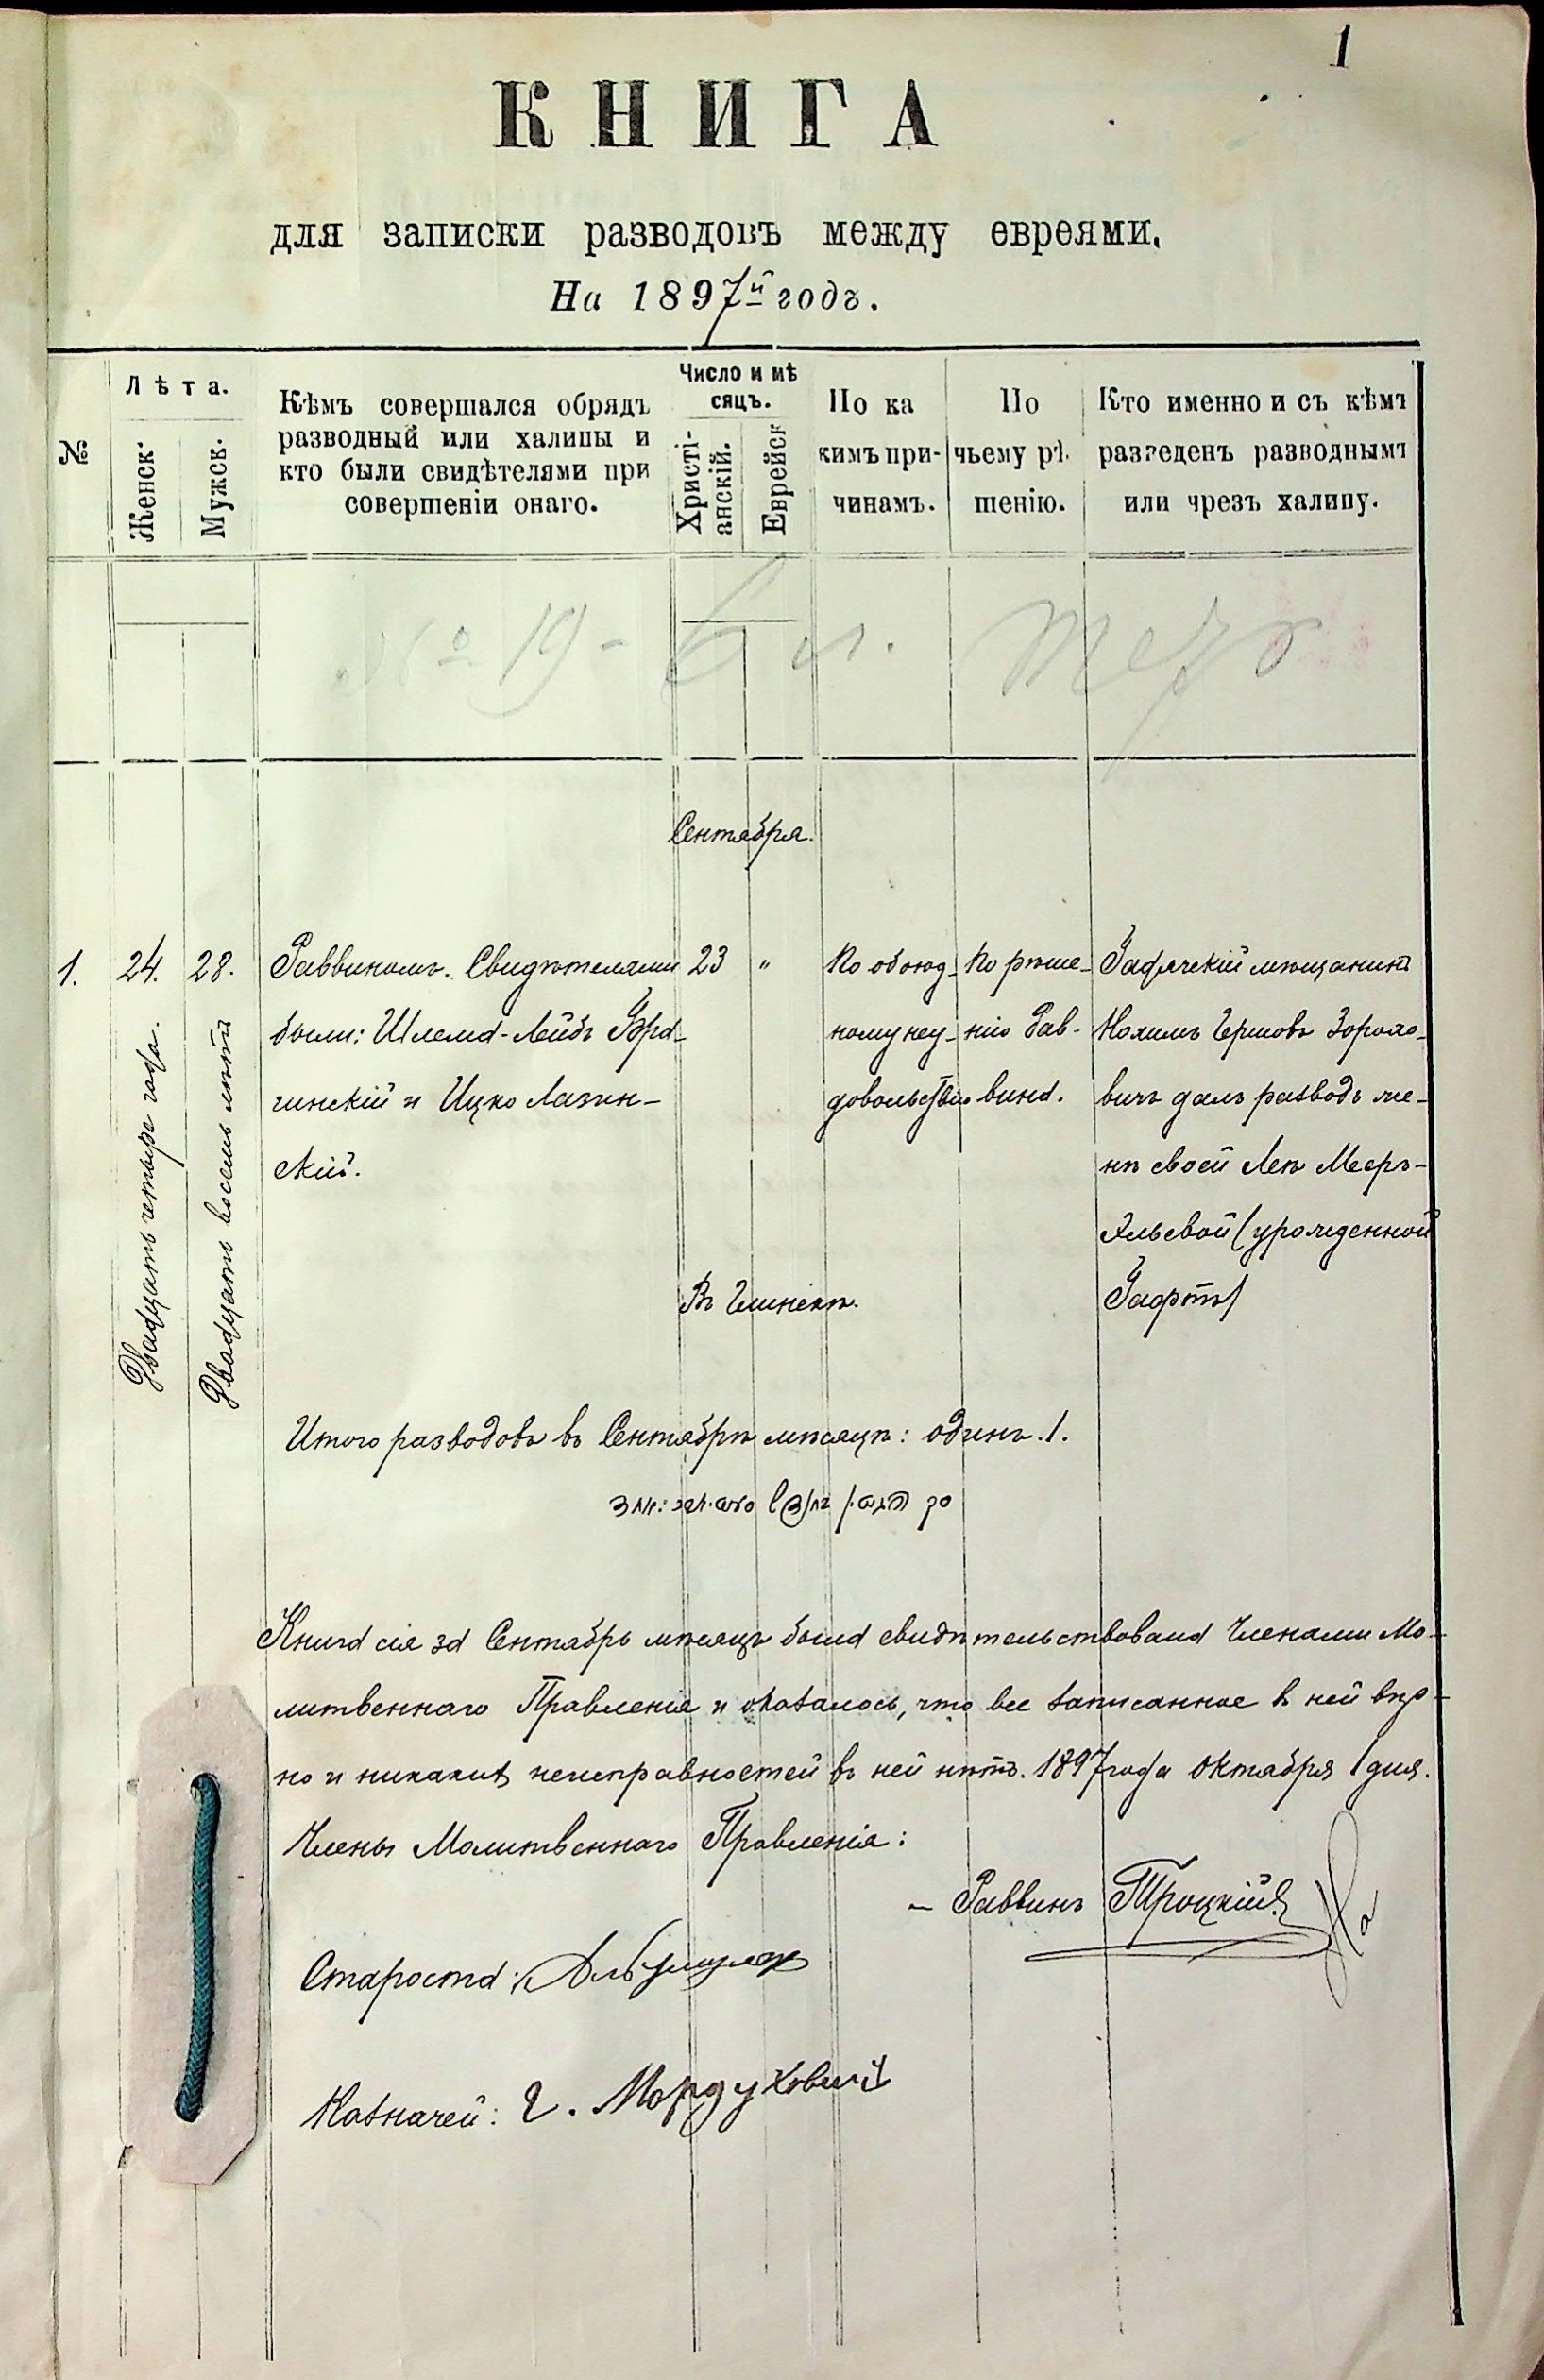 1
КНИГА
для записки разводовъ между евреями.
На 1897й годъ.
№
Лѣта.
Женск.
Мужск.
Кѣмъ совершался обрядъ
разводный или халицы и
кто были свидѣтелями при
совершеніи онаго.
Число и мѣ
сяцъ.
Христі-
анскій.
Еврейск
По ка
кимъ при-
чинамъ.
По
чьему рѣ
шенію.
Кто именно и съ кѣмъ
разведенъ разводнымъ
или чрезъ халицу.
№ 19 -
Сентября.
1.
24.
Двадцать четыре года.
28.
Двадцать восемь лѣтъ
Раввиномъ. Свидѣтелями
были: Шлема-Лейбъ
гинскій и Ицко Лазин-
скій.
23
"
По обоюд-
ному неу-
довольствію
По рѣше-
нію Рав-
вина.
Гадячскій мѣщанинъ
Нохимъ Гершовъ Зорохо-
вичъ далъ разводъ же-
нѣ своей Леѣ Мееръ-
Эльевой (урожденной
Въ Глинскѣ.
Итого разводовъ въ Сентябрѣ мѣсяцѣ: одинъ. 1.
Книга сія за Сентябрь мѣсяцъ была свидѣтельствована Членами Мо-
литвеннаго Правленія и оказалось, что все записанное въ ней вѣр-
но и никакихъ неисправностей въ ней нѣтъ. 1897 года Октября 1 дня.
Члены Молитвеннаго Правленія:
- Раввинъ Троцкій
Староста:
Казначей: Г. Мордуховичъ